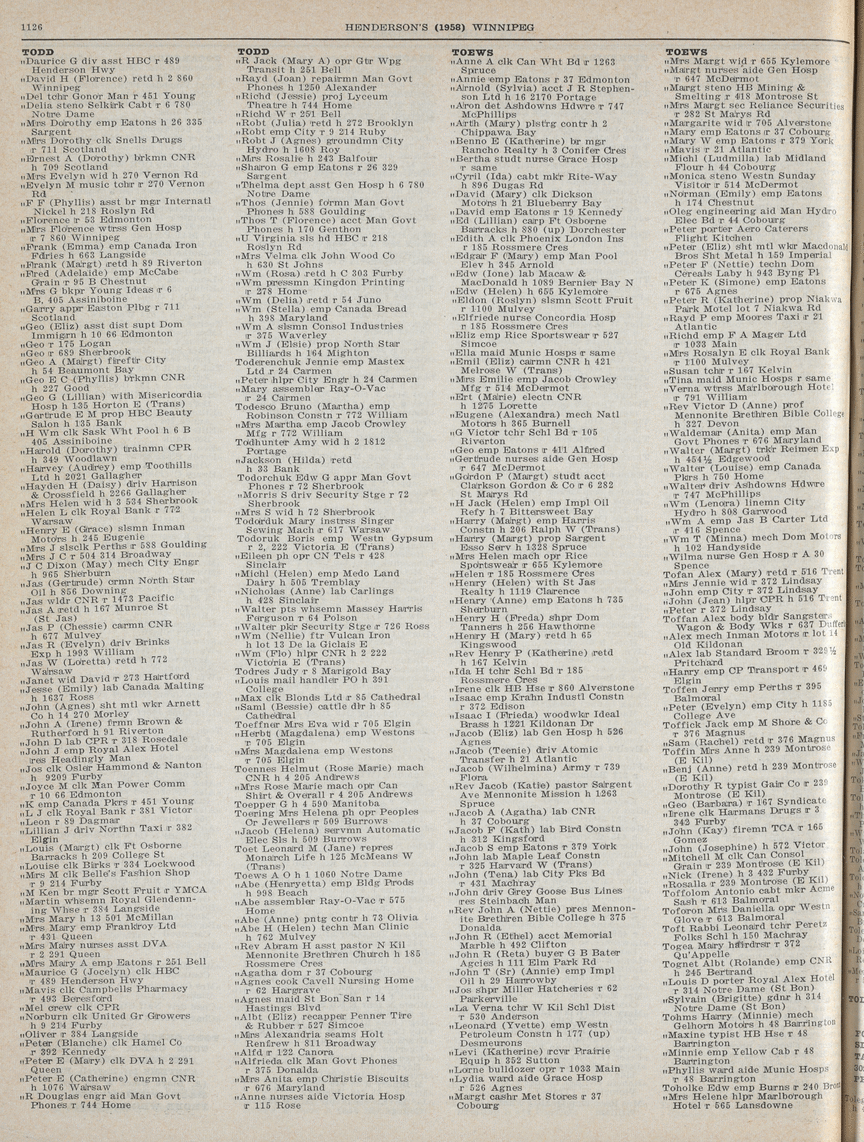 1126
HENDERSON'S (1958) WINNIPEG
TODD
„Daurice G div asst HBC r 489
Henderson Hwy
„David H (Florence) retd h 2 860
Winnipeg
„Del tchr Gonor Man r 451 Young
„Delia steno Selkirk Cabt r 6 780
Notre Dame
„Mrs Dorothy emp Eatons h 26 335
Sargent
„Mrs Dorothy clk Snells Drugs
r 711 Scotland
„Ernest A (Dorothy) brkmn CNR
h 709 Scotland
„Mrs Evelyn wid h 270 Vernon Rd
„Evelyn M music tchr r 270 Vernon
Rd
„F F (Phyllis) asst br mgr Internatl
Nickel h 218 Roslyn Rd
„Florence r 53 Edmonton
„Mrs Florence wtrss Gen Hosp
r 7 860 Winnipeg
„Frank (Emma) emp Canada Iron
Fdries h 663 Langside
„Frank (Margt) retd h 89 Riverton
„Fred (Adelaide) emp McCabe
Grain r 95 B Chestnut
„Mrs G bkpr Young Ideas r 6
B, 405 Assiniboine
„Garry appr Easton Plbg r 711
Scotland
„Geo (Eliz) asst dist supt Dom
Immigrn h 10 66 Edmonton
„Geo r 175 Logan
„Geo r 689 Sherbrook
„Geo A (Margt) fireftr City
h 54 Beaumont Bay
„Geo E C (Phyllis) brkmn CNR
h 227 Good
„Geo G (Lillian) with Misericordia
Hosp h 135 Horton E (Trans)
„Gertrude E M prop HBC Beauty
Salon h 135 Bank
„H Wm clk Sask Wht Pool h 6 B
405 Assiniboine
„Harold (Dorothy) trainmn CPR
h 349 Woodlawn
„Harvey (Audrey) emp Toothills
Ltd h 2021 Gallagher
„Hayden H (Daisy) driv Harrison
& Crossfield h 2266 Gallagher
„Mrs Helen wid h 3 534 Sherbrook
„Helen L clk Royal Bank r 772
Warsaw
„Henry E (Grace) slsmn Inman
Motors h 245 Eugenie
„Mrs J slsclk Perths r 588 Goulding
„Mrs J C r 504 214 Broadway
„J C Dixon (May) mech City Engr
h 965 Sherburn
„Jas (Gertrude) ormn North Star
Oil h 856 Downing
„Jas wldr CNR r 1473 Pacific
„Jas A retd h 167 Munroe St
(St Jas)
„Jas P (Chessie) carmn CNR
h 677 Mulvey
„Jas R (Evelyn) driv Brinks
Exp h 1993 William
„Jas W (Loretta) retd h 772
Warsaw
„Janet wid David r 273 Hartford
„Jesse (Emily) lab Canada Malting
h 1637 Ross
„John (Agnes) sht mtl wkr Arnett
Co h 14 270 Morley
„John A (Irene) frmn Brown &
Rutherford h 91 Riverton
„John D lab CPR r 218 Rosedale
„John J emp Royal Alex Hotel
res Headingly Man
„Jos clk Osler Hammond & Nanton
h 9209 Furby
„Joyce M clk Man Power Comm
r 10 66 Edmonton
„K emp Canada Pkrs r 451 Young
„L J clk Royal Bank r 381 Victor
„Leon r 89 Dagmar
„Lillian J driv Northn Taxi r 382
Elgin
„Louis (Margt) clk Ft Osborne
Barracks h 209 College St
„Louise clk Birks r 334 Lockwood
„Mrs M clk Belle's Fashion Shop
r 9 214 Furby
„M Ken br mgr Scott Fruit r YMCA
„Martin whsemn Royal Glendenn-
ing Whse r 384 Langside
„Mrs Mary h 13 501 McMillan
„Mrs Mary emp Frankroy Ltd
r 431 Queen
„Mrs Mary nurses asst DVA
r 2 291 Queen
„Mrs Mary A emp Eatons r 251 Bell
„Maurice G (Jocelyn) clk HBC
r 489 Henderson Hwy
„Mavis clk Campbells Pharmacy
r 493 Beresford
„Mel crew clk CPR
„Norburn clk United Gr Growers
h 9 214 Furby
„Oliver r 384 Langside
„Peter (Blanche) clk Hamel Co
r 392 Kennedy
„Peter E (Mary) clk DVA h 2 291
Queen
„Peter E (Catherine) engmn CNR
h 1076 Warsaw
„R Douglas engr aid Man Govt
Phones r 744 Home
TODD
„R Jack (Mary A) opr Gtr Wpg
Transit h 251 Bell
„Rayd (Joan) repairmn Man Govt
Phones h 1250 Alexander
„Richd (Jessie) proj Lyceum
Theatre h 744 Home
„Richd W r 251 Bell
„Robt (Julia) retd h 272 Brooklyn
„Robt emp City r 9 214 Ruby
„Robt J (Agnes) groundmn City
Hydro h 1608 Roy
„Mrs Rosalie h 243 Balfour
„Sharon G emp Eatons r 26 329
Sargent
„Thelma dept asst Gen Hosp h 6 780
Notre Dame
„Thos (Jennie) formn Man Govt
Phones h 588 Goulding
„Thos T (Florence) acct Man Govt
Phones h 170 Genthon
„U Virginia sls hd HBC r 218
Roslyn Rd
„Mrs Velma clk John Wood Co
h 630 St Johns
„Wm (Rosa) retd h C 303 Furby
„Wm pressmn Kingdon Printing
r 278 Home
„Wm (Delia) retd r 54 Juno
„Wm (Stella) emp Canada Bread
h 398 Maryland
„Wm A slsmn Consol Industries
r 375 Waverley
„Wm J (Elsie) prop North Star
Billiards h 164 Mighton
Toderenchuk Jennie emp Mastex
Ltd r 24 Carmen
„Peter hlpr City Engr h 24 Carmen
„Mary assembler Ray-O-Vac
r 24 Carmen
Todesco Bruno (Martha) emp
Robinson Constn r 772 William
„Mrs Martha emp Jacob Crowley
Mfg r 772 William
Todhunter Amy wid h 2 1812
Portage
„Jackson (Hilda) retd
h 33 Bank
Todorchuk Edw G appr Man Govt
Phones r 72 Sherbrook
„Morris S driv Security Stge r 72
Sherbrook
„Mrs S wid h 72 Sherbrook
Todorduk Mary instrss Singer
Sewing Mach r 617 Warsaw
Todoruk Boris emp Westn Gypsum
r 2, 222 Victoria E (Trans)
„Eileen ph opr CN Tels r 428
Sinclair
„Michl (Helen) emp Medo Land
Dairy h 505 Tremblay
„Nicholas (Anne) lab Carlings
h 428 Sinclair
„Walter pts whsemn Massey Harris
Ferguson r 64 Polson
„Walter pkr Security Stge r 726 Ross
„Wm (Nellie) ftr Vulcan Iron
h lot 13 De la Giclais E
„Wm (Flo) hlpr CNR h 2 222
Victoria E (Trans)
Todres Judy r 8 Marigold Bay
„Louis mail handler PO h 391
College
„Max clk Blonds Ltd r 85 Cathedral
„Saml (Bessie) cattle dlr h 85
Cathedral
Toeffner Mrs Eva wid r 705 Elgin
„Herbt (Magdalena) emp Westons
r 705 Elgin
„Mrs Magdalena emp Westons
r 705 Elgin
Toennes Helmut (Rose Marie) mach
CNR h 4 205 Andrews
„Mrs Rose Marie mach opr Can
Shirt & Overall r 4 205 Andrews
Toepper G h 4 590 Manitoba
Toering Mrs Helena ph opr Peoples
Cr Jewellers r 509 Burrows
„Jacob (Helena) servmn Automatic
Elec Sls h 509 Burrows
Toet Leonard M (Jane) repres
Monarch Life h 125 McMeans W
(Trans)
Toews A O h 1 1060 Notre Dame
„Abe (Henryetta) emp Bldg Prods
h 998 Beach
„Abe assembler Ray-O-Vac r 575
Home
„Abe (Anne) pntg contr h 73 Olivia
„Abe H (Helen) techn Man Clinic
h 762 Mulvey
„Rev Abram H asst pastor N Kil
Mennonite Brethren Church h 185
Rossmere Cres
„Agatha dom r 37 Cobourg
„Agnes cook Cavell Nursing Home
r 62 Hargrave
„Agnes maid St Bon San r 14
Hastings Blvd
„Albt (Eliz) recapper Penner Tire
& Rubber r 527 Simcoe
„Mrs Alexandria seams Holt
Renfrew h 811 Broadway
„Alfd r 122 Canora
„Alfrieda clk Man Govt Phones
r 375 Donalda
„Mrs Anita emp Christie Biscuits
r 676 Maryland
„Anne nurses aide Victoria Hosp
r 115 Rose
TOEWS
„Anne A clk Can Wht Bd r 1263
Spruce
„Annie emp Eatons r 37 Edmonton
„Arnold (Sylvia) acct J R Stephen-
son Ltd h 16 2170 Portage
„Aron det Ashdowns Hdwre r 747
McPhillips
„Arth (Mary) plstrg contr h 2
Chippawa Bay
„Benno E (Katherine) br mgr
Rancho Realty h 3 Conifer Cres
„Bertha studt nurse Grace Hosp
r same
„Cyril (Ida) cabt mkr Rite-Way
h 896 Dugas Rd
„David (Mary) clk Dickson
Motors h 21 Blueberry Bay
„David emp Eatons r 19 Kennedy
„Ed (Lillian) carp Ft Osborne
Barracks h 880 (up) Dorchester
„Edith A clk Phoenix London Ins
r 185 Rossmere Cres
„Edgar F (Mary) emp Man Pool
Elev h 345 Arnold
„Edw (Ione) lab Macaw &
MacDonald h 1089 Bernier Bay N
„Edw (Helen) h 655 Kylemore
„Eldon (Roslyn) slsmn Scott Fruit
r 1100 Mulvey
„Elfriede nurse Concordia Hosp
r 185 Rossmere Cres
„Eliz emp Rice Sportswear r 527
Simcoe
„Ella maid Munic Hosps r same
„Emil (Eliz) carmn CNR h 421
Melrose W (Trans)
„Mrs Emilie emp Jacob Crowley
Mfg r 514 McDermot
„Ert (Marie) electn CNR
h 1275 Lorette
„Eugene (Alexandra) mech Natl
Motors h 365 Burnell
„G Victor tchr Schl Bd r 105
Riverton
„Geo emp Eatons r 411 Alfred
„Gertrude nurses aide Gen Hosp
r 647 McDermot
„Gordon P (Margt) studt acct
Clarkson Gordon & Co r 6 282
St Marys Rd
„H Jack (Helen) emp Impl Oil
Refy h 7 Bittersweet Bay
„Harry (Margt) emp Harris
Constn h 206 Ralph W (Trans)
„Harry (Margt) prop Sargent
Esso Serv h 1328 Spruce
„Mrs Helen mach opr Rice
Sportswear r 655 Kylemore
„Helen r 185 Rossmere Cres
„Henry (Helen) with St Jas
Realty h 1119 Clarence
„Henry (Anne) emp Eatons h 735
Sherburn
„Henry H (Freda) shpr Dom
Tanners h 256 Hawthorne
„Henry H (Mary) retd h 65
Kingswood
„Rev Henry P (Katherine) retd
h 167 Kelvin
„Ida H tchr Schl Bd r 185
Rossmere Cres
„Irene clk HB Hse r 860 Alverstone
„Isaac emp Krahn Industl Constn
r 372 Edison
„Isaac I (Frieda) woodwkr Ideal
Brass h 1221 Kildonan Dr
„Jacob (Eliz) lab Gen Hosp h 526
Agnes
„Jacob (Teenie) driv Atomic
Transfer h 21 Atlantic
„Jacob (Wilhelmina) Army r 739
Flora
„Rev Jacob (Katie) pastor Sargent
Ave Mennonite Mission h 1263
Spruce
„Jacob A (Agatha) lab CNR
h 37 Cobourg
„Jacob F (Kath) lab Bird Constn
h 312 Kingsford
„Jacob S emp Eatons r 379 York
„John lab Maple Leaf Constn
r 325 Harvard W (Trans)
„John (Tena) lab City Pks Bd
r 431 Machray
„John driv Grey Goose Bus Lines
res Steinbach Man
„Rev John A (Nettie) pres Mennon-
ite Brethren Bible College h 375
Donalda
„John R (Ethel) acct Memorial
Marble h 492 Clifton
„John R (Reta) buyer G B Bater
Agcies h 111 Elm Park Rd
„John T (Sr) (Annie) emp Impl
Oil h 29 Harrowby
„Jos shpr Miller Hatcheries r 62
Parkerville
„La Verna tchr W Kil Schl Dist
r 530 Anderson
„Leonard (Yvette) emp Westn
Petroleum Constn h 177 (up)
Desmeurons
„Levi (Katherine) rcvr Prairie
Equip h 352 Sutton
„Lorne bulldozer opr r 1033 Main
„Lydia ward aide Grace Hosp
r 526 Agnes
„Margt cashr Met Stores r 37
Cobourg
TOEWS
„Mrs Margt wid r 655 Kylemore
„Margt nurses aide Gen Hosp
r 647 McDermot
„Margt steno HB Mining &
Smelting r 418 Montrose St
„Mrs Margt sec Reliance Securities
r 282 St Marys Rd
„Margarite wid r 705 Alverstone
„Mary emp Eatons r 37 Cobourg
„Mary W emp Eatons r 379 York
„Mavis r 21 Atlantic
„Michl (Ludmilla) lab Midland
Flour h 44 Cobourg
„Monica steno Westn Sunday
Visitor r 514 McDermot
„Norman (Emily) emp Eatons
h 174 Chestnut
„Oleg engineering aid Man Hydro
Elec Bd r 44 Cobourg
„Peter porter Aero Caterers
Flight Kitchen
„Peter (Eliz) sht mtl wkr Macdonald
Bros Sht Metal h 159 Imperial
„Peter F (Nettie) techn Dom
Cereals Laby h 943 Byng Pl
„Peter K (Simone) emp Eatons
r 675 Agnes
„Peter R (Katherine) prop Niakwa
Park Motel lot 7 Niakwa Rd
„Rayd P emp Moores Taxi r 21
Atlantic
„Richd emp F A Mager Ltd
r 1033 Main
„Mrs Rosalyn E clk Royal Bank
r 1100 Mulvey
„Susan tchr r 167 Kelvin
„Tina maid Munic Hosps r same
„Verna wtrss Marlborough Hotel
r 791 William
„Rev Victor D (Anne) prof
Mennonite Brethren Bible College
h 327 Devon
„Waldemar (Anita) emp Man
Govt Phones r 676 Maryland
„Walter (Margt) trkr Reimer Exp
h 454½ Edgewood
„Walter (Louise) emp Canada
Pkrs h 750 Home
„Walter driv Ashdowns Hdwre
r 747 McPhillips
„Wm (Lenora) linemn City
Hydro h 808 Garwood
„Wm A emp Jas B Carter Ltd
r 416 Spence
„Wm T (Minna) mech Dom Motors
h 102 Handyside
„Wilma nurse Gen Hosp r A 30
Spence
Tofan Alex (Mary) retd r 516 Trent
„Mrs Jennie wid r 372 Lindsay
„John emp City r 372 Lindsay
„John (Jean) hlpr CPR h 516 Trent
„Peter r 372 Lindsay
Toffan Alex body bldr Sangsters
Wagon & Body Wks r 637 Dufferin
„Alex mech Inman Motors r lot 14
Old Kildonan
„Alex lab Standard Broom r 328½
Pritchard
„Harry emp CP Transport r 469
Elgin
Toffen Jerry emp Perths r 395
Balmoral
„Peter (Evelyn) emp City h 1185
College Ave
Toffick Jack emp M Shore & Co
r 376 Magnus
„Sam (Rachel) retd r 376 Magnus
Toffin Mrs Anne h 239 Montrose
(E Kil)
„Benj (Anne) retd h 239 Montrose
(E Kil)
„Dorothy R typist Gair Co r 239
Montrose (E Kil)
„Geo (Barbara) r 167 Syndicate
„Irene clk Harmans Drugs r 3
342 Furby
„John (Kay) firemn TCA r 165
Gomez
„John (Josephine) h 572 Victor
„Mitchell M clk Can Consol
Grain r 239 Montrose (E Kil)
„Nick (Irene) h 3 432 Furby
„Rosalla r 239 Montrose (E Kil)
Toffolom Antonio cabt mkr Acme
Sash r 613 Balmoral
Toforon Mrs Daniella opr Westn
Glove r 613 Balmoral
Toft Rabbi Leonard tchr Peretz
Folks Schl h 150 Machray
Togea Mary hairdrsr r 372
Qu'Appelle
Tognet Albt (Rolande) emp CNR
h 245 Bertrand
„Louis D porter Royal Alex Hotel
r 314 Notre Dame (St Bon)
„Sylvain (Brigitte) gdnr h 314
Notre Dame (St Bon)
Tohms Harry (Minnie) mech
Gelhorn Motors h 48 Barrington
„Maxine typist HB Hse r 48
Barrington
„Minnie emp Yellow Cab r 48
Barrington
„Phyllis ward aide Munic Hosps
r 48 Barrington
Toholke Edw emp Burns r 240
„Mrs Helene hlpr Marlborough
Hotel r 565 Lansdowne